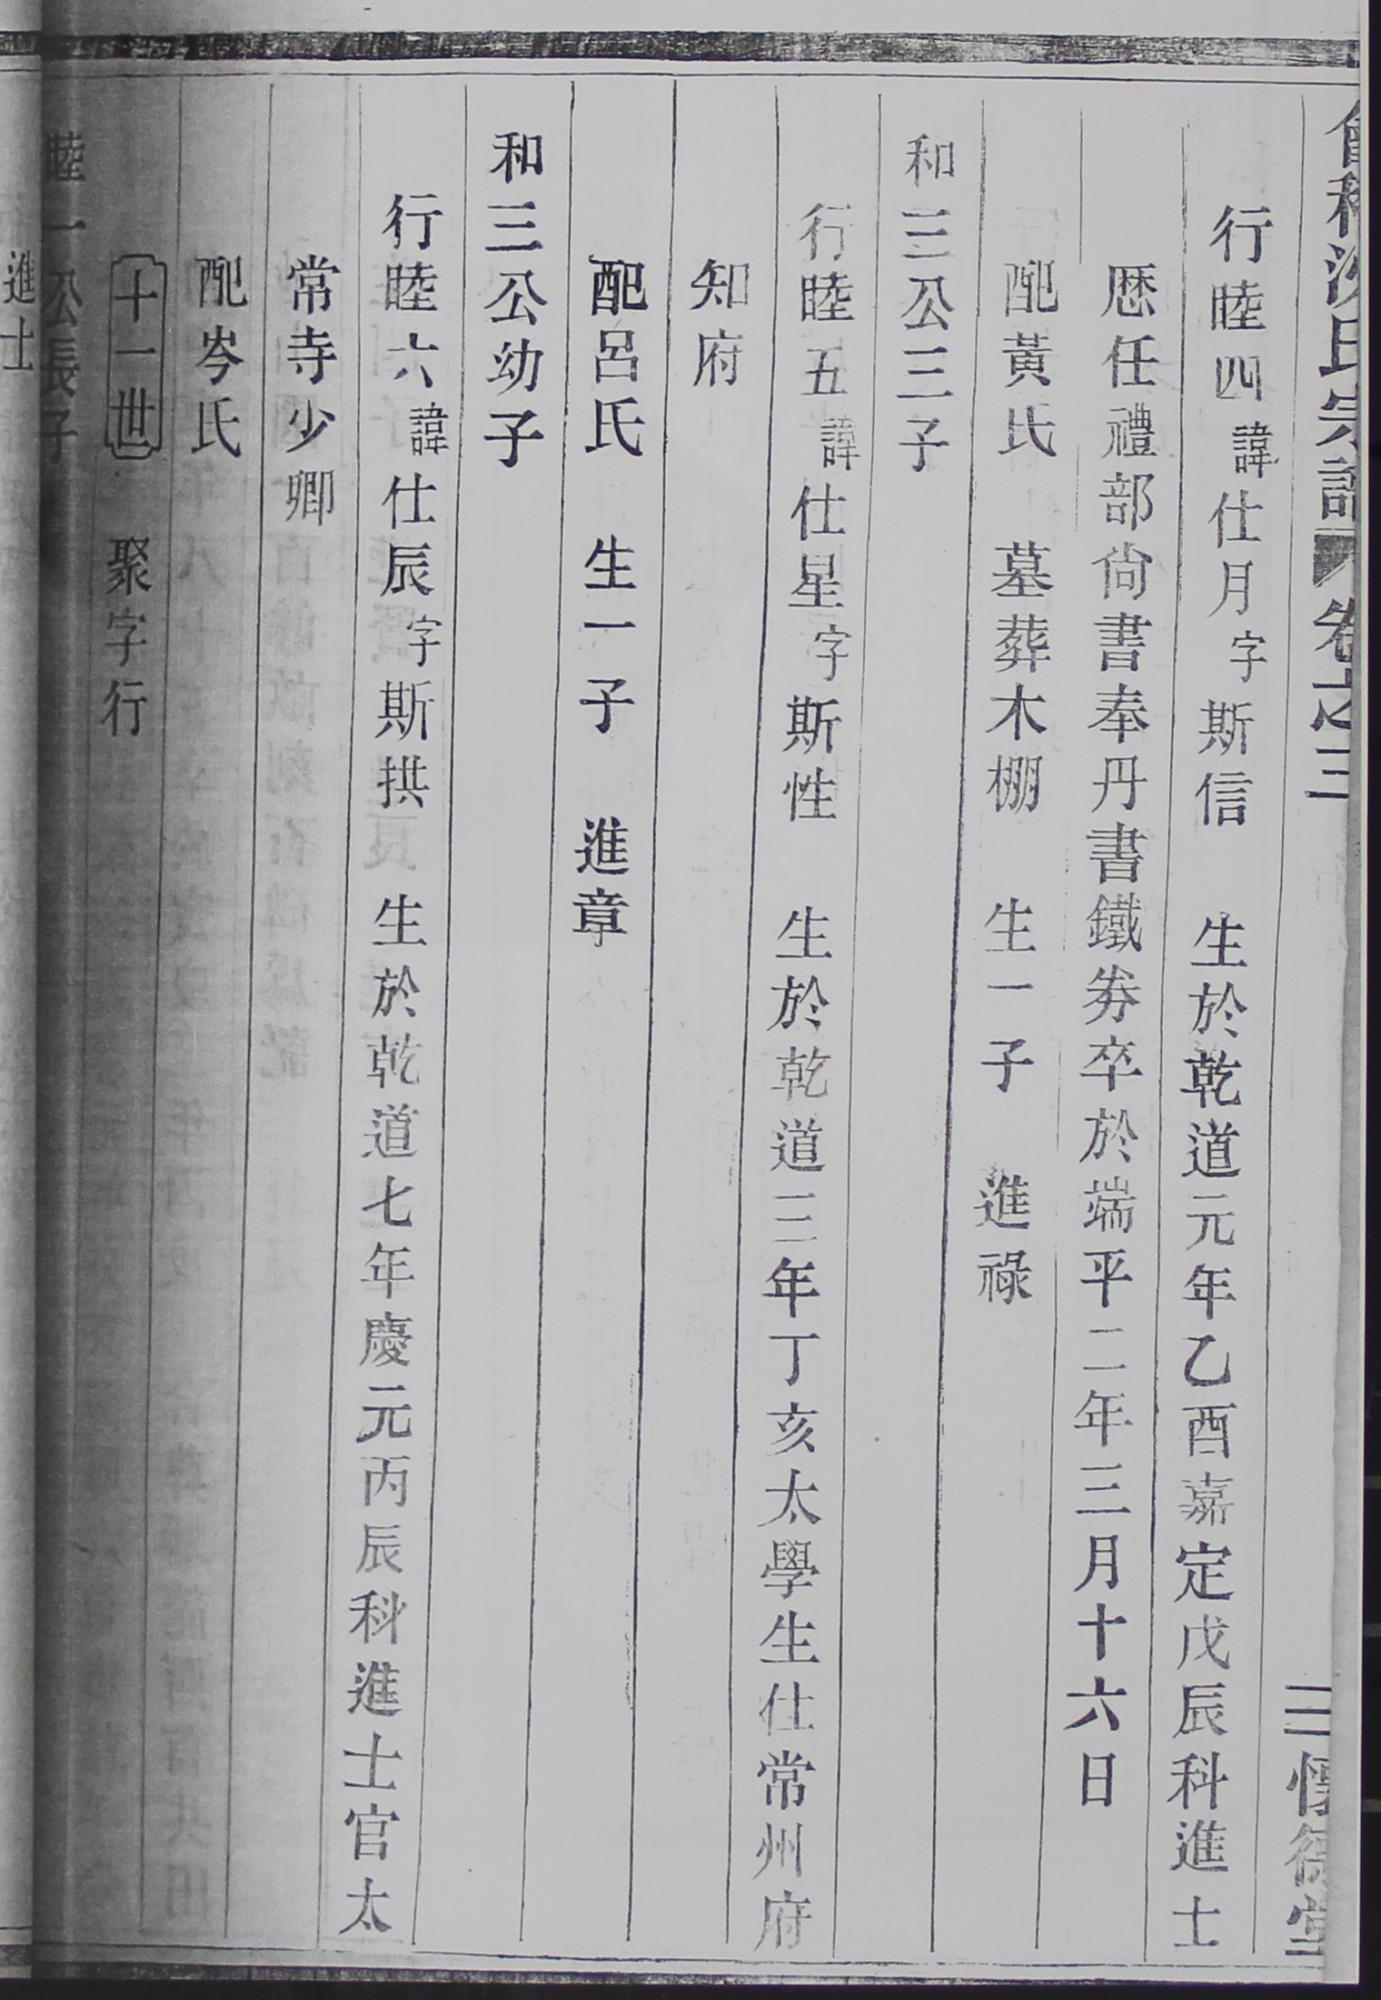 會稽沈氏宗譜 卷之三 二 懷德堂
行睦四諱仕月字斯信 生於乾道元年乙酉嘉定戊辰科進士
歷任禮部尙書奉丹書鐵劵卒於端平二年三月十六日
配黃氏 墓葬木棚 生一子 進祿
和三公三子
行睦五諱仕星字斯性 生於乾道三年丁亥太學生仕常州府
知府
配呂氏 生一子 進章
和三公幼子
行睦六諱仕辰字斯拱 生於乾道七年慶元丙辰科進士官太
常寺少卿
配岑氏
十一世 聚字行
睦一公長子
進士